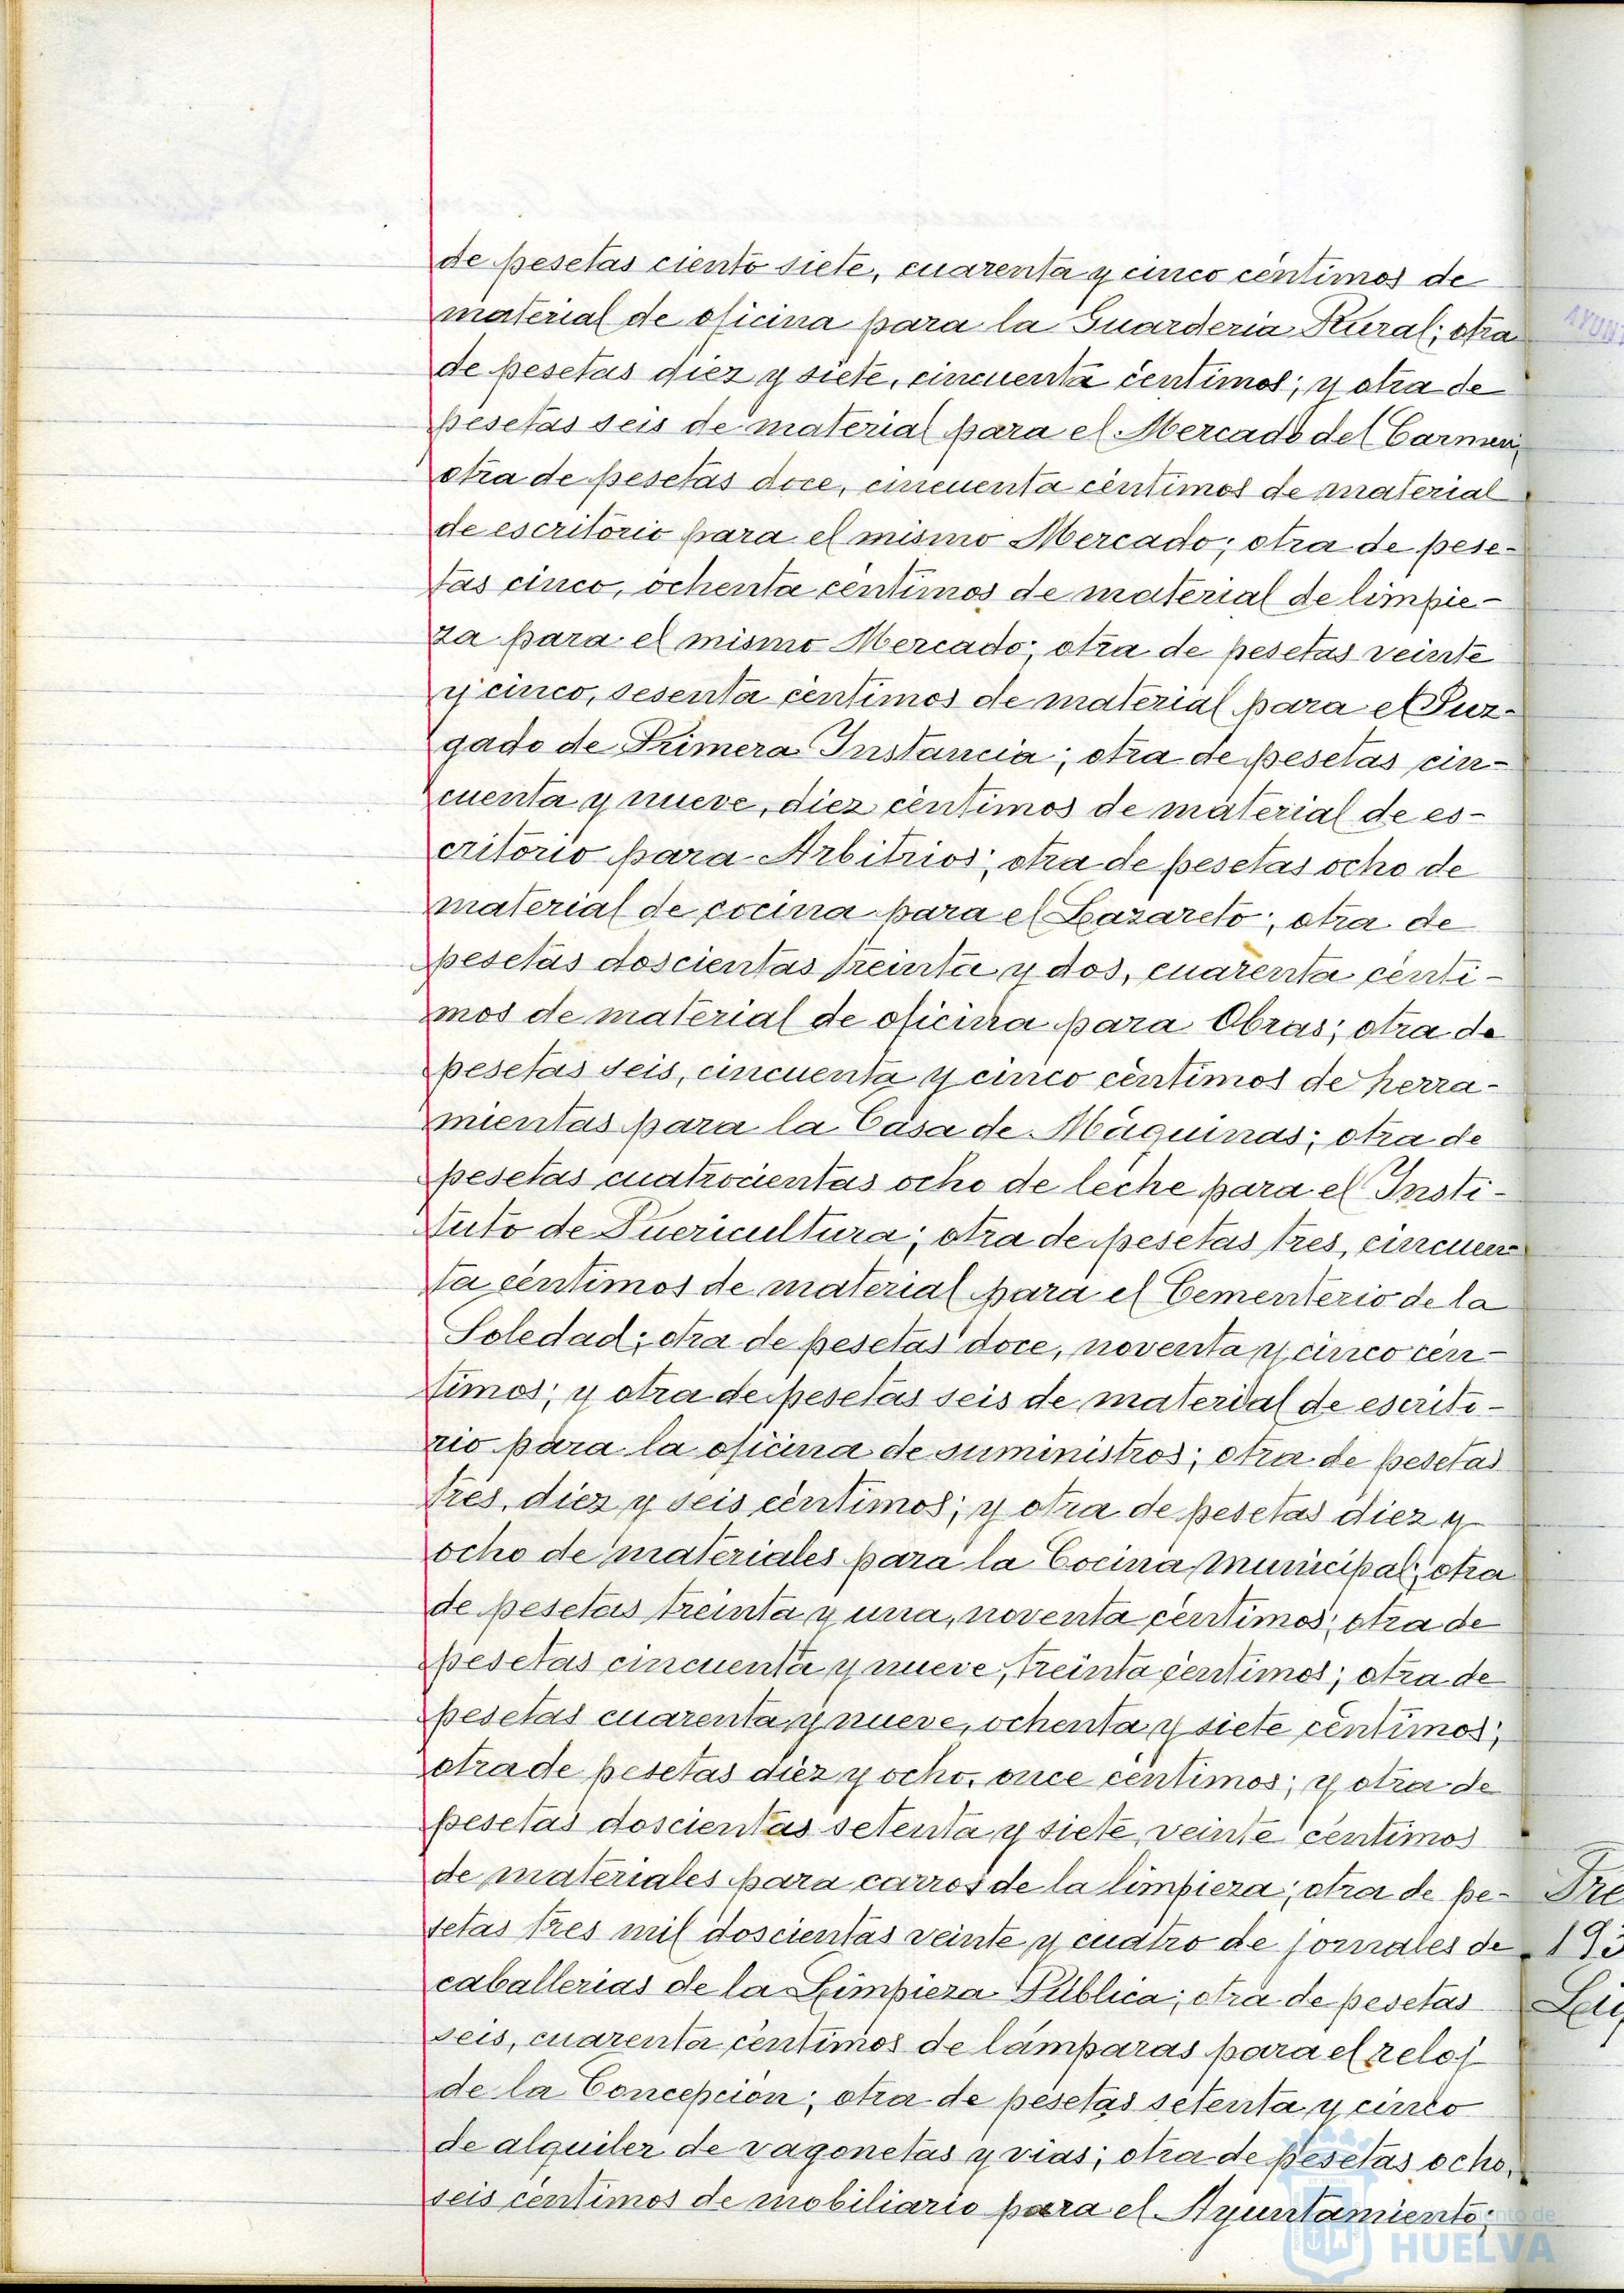 de pesetas ciento siete, cuarenta y cinco céntimos de
material de oficina para la Guarderia Rural; otra
de pesetas diez y siete, cincuenta céntimos; y otra de
pesetas seis de material para el Mercado del Carmen;
otra de pesetas doce, cincuenta céntimos de material
de escritorio para el mismo Mercado; otra de pese-
tas cinco, ochenta céntimos de material de limpie-
za para el mismo Mercado; otra de pesetas veinte
y cinco, sesenta céntimos de material para el Juz-
gado de Primera Instancia; otra de pesetas cin-
cuenta y nueve, diez céntimos de material de es-
critorio para Arbitrios; otra de pesetas ocho de
material de cocina para el Lazareto; otra de
pesetas doscientas treinta y dos, cuarenta cénti-
mos de material de oficina para Obras; otra de
pesetas seis, cincuenta y cinco céntimos de herra-
mientas para la Casa de Máquinas; otra de
pesetas cuatrocientas ocho de leche para el Insti-
tuto de Puericultura; otra de pesetas tres, cincuen
ta céntimos de material para el Cementerio de la
Soledad; otra de pesetas doce, noventa y cinco cén-
timos; y otra de pesetas seis de material de escrito-
rio para la oficina de suministros; otra de pesetas
tres, diez y seis céntimos; y otra de pesetas diez y
ocho de materiales para la Cocina Municipal; otra
de pesetas treinta y una, noventa céntimos; otra de
pesetas cincuenta y nueve, treinta céntimos; otra de
pesetas cuarenta y nueve, ochenta y siete céntimos;
otra de pesetas diez y ocho, once céntimos; y otra de
pesetas doscientas setenta y siete, veinte céntimos
de materiales para carros de la limpieza; otra de pe-
setas tres mil doscientas veinte y cuatro de jornales de
caballerias de la Limpieza Pública; otra de pesetas
seis, cuarenta céntimos de lámparas para el reloj
de la Concepción; otra de pesetas setenta y cinco
de alquiler de vagonetas y vias; otra de pesetas ocho,
seis céntimos de mobiliario para el Ayuntamiento;
HUELVA